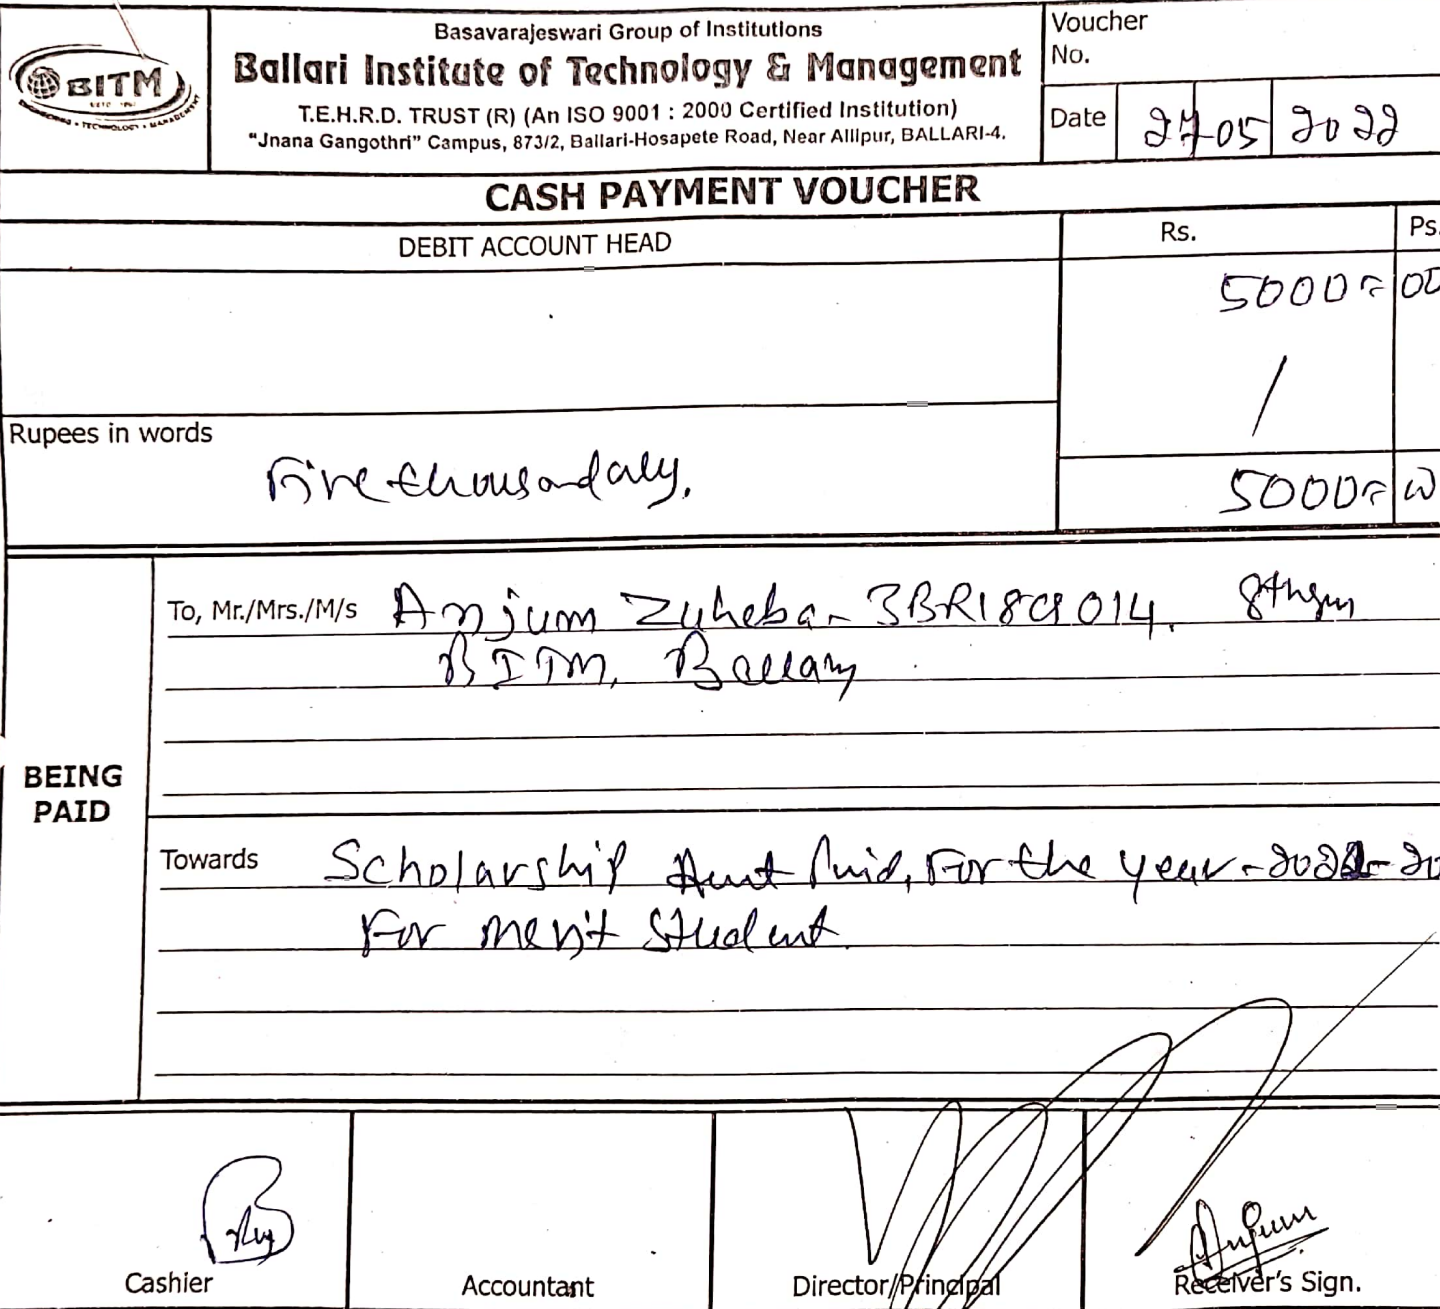 BITM
ESTD 1997
ENGINEERING • TECHNOLOGY • MANAGEMENT
Basavarajeswari Group of Institutions
Ballari Institute of Technology & Management
T.E.H.R.D. TRUST (R) (An ISO 9001 : 2000 Certified Institution)
"Jnana Gangothri" Campus, 873/2, Ballari-Hosapete Road, Near Allipur, BALLARI-4.
Voucher
No.
Date 27 05 2022
CASH PAYMENT VOUCHER
DEBIT ACCOUNT HEAD Rs. Ps.
5000= 00
/
Rupees in words
Five thousand only. 5000= 00
BEING
PAID
To, Mr./Mrs./M/s Anjum Zuheba - 3BR18 014. 8th sem
BITM, Ballary
Towards Scholarship Amt Paid, For the year - -20
For merit Student
Cashier
Accountant
Director/Principal
Anjum
Receiver's Sign.